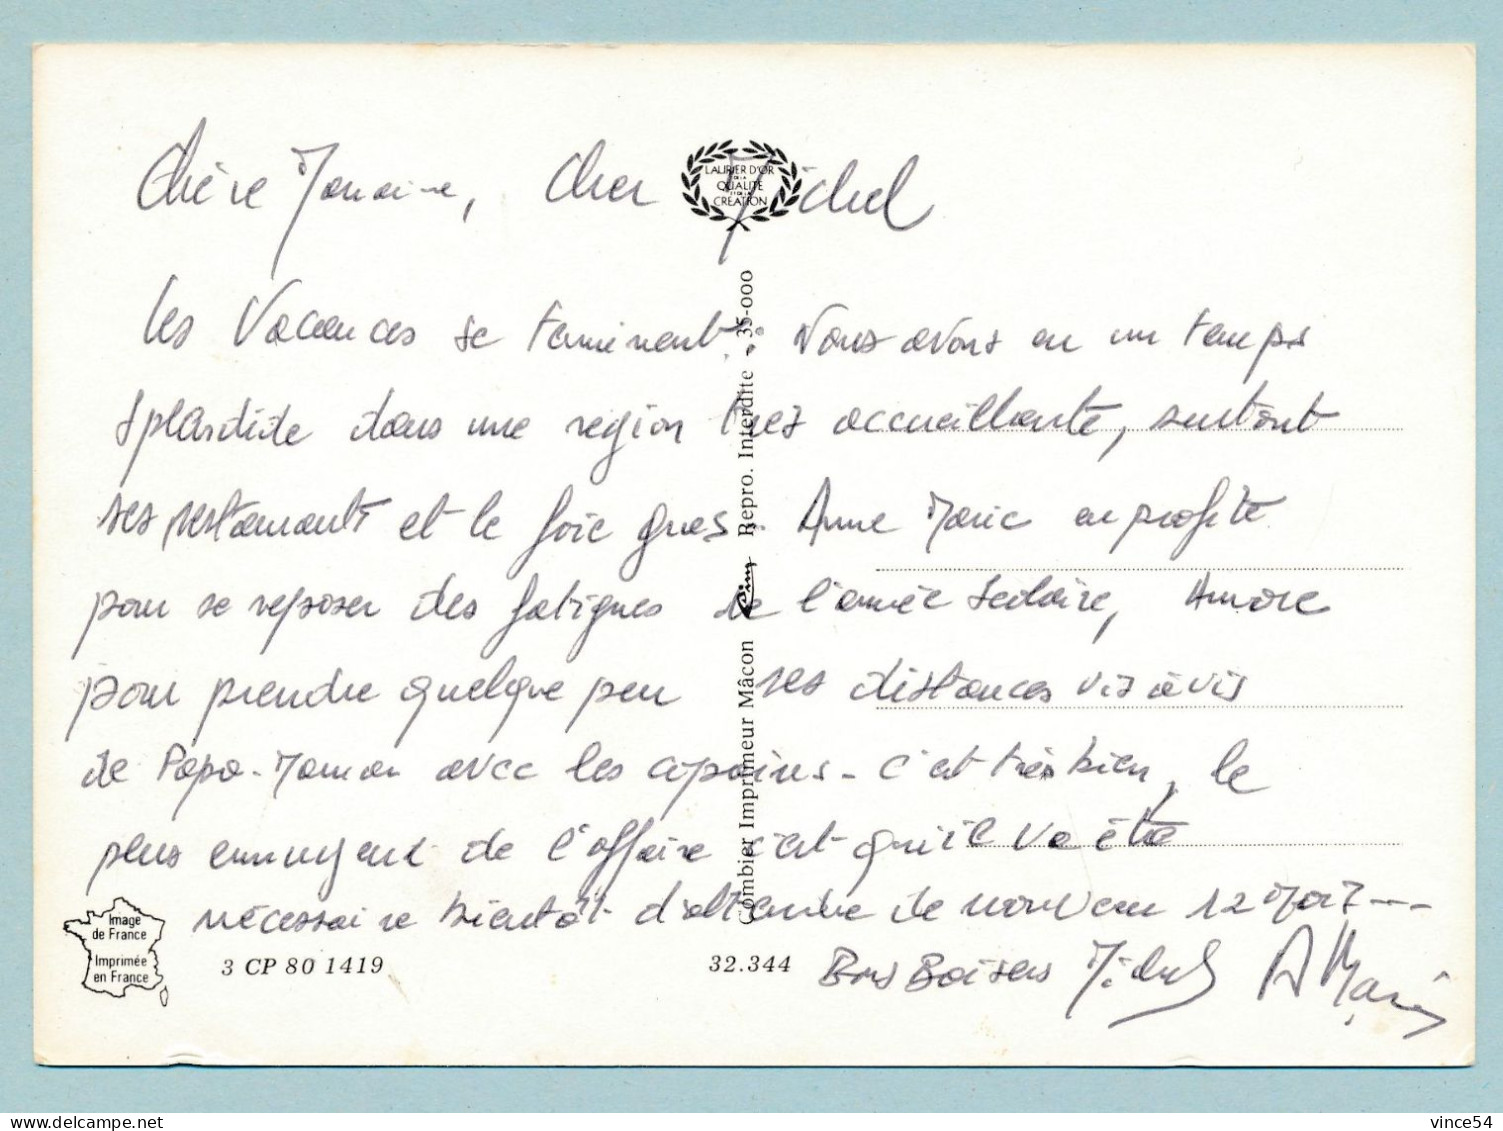 Chère Monaine, Cher Michel
LAURIER D'OR
DE LA
QUALITÉ
ET DE LA
CRÉATION
Les Vacances se terminent. Nous avons eu un temps
splendide dans une region très accueillante, surtout
ses restaurants et le foie gras. Anne Marie en profite
pour se reposer des fatigues de l'année scolaire,
pour prendre quelque peu ses distances vis à vis
de Papa-Maman avec les copains - c'est très bien, le
plus ennuyeux de l'affaire c'est qu'il va être
nécessaire bientôt d'attendre de nouveau 12 mois ---
Bons Baisers Michel AMarie
Combier Imprimeur Mâcon Cim Repro. Interdite - 35-000
Image
de France
Imprimée
en France
3 CP 80 1419
32.344
vince54